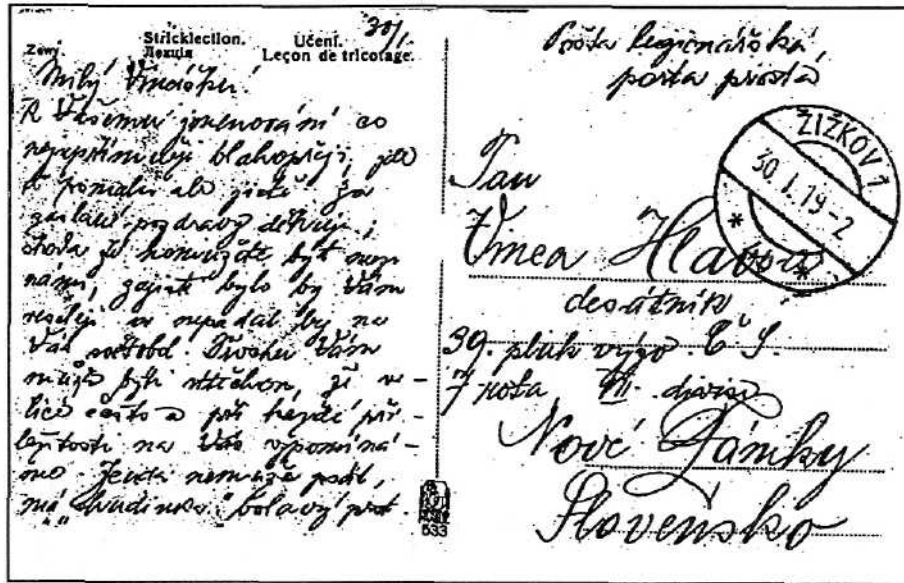 Stricklection.
Лекція
Učení.
Leçon de tricotage.
30/1
Milý Vincášku!
K Vašemu jmenování co
nejupřímněji blahopřeji, jde
to pomalu ale jistě. Za
zaslané pozdravy děkuji,
škoda že nemůžete být mezi
námi, zajisté bylo by Vám
veseleji a nepadal by na
Vás . Vám
může býti , že ve-
lice často a při každé pří-
ležitosti na Vás vzpomíná-
me. nemůže psát,
má "chudinka" bolavý prst.
Pošta legionářská,
porta prostá
ŽIŽKOV 1
30. I. 19-2
Pan
Vinca Hlavsa
desátník
39. pluk výzv. Č. S.
7 rota VII. divise
Nové Zámky
Slovensko
533